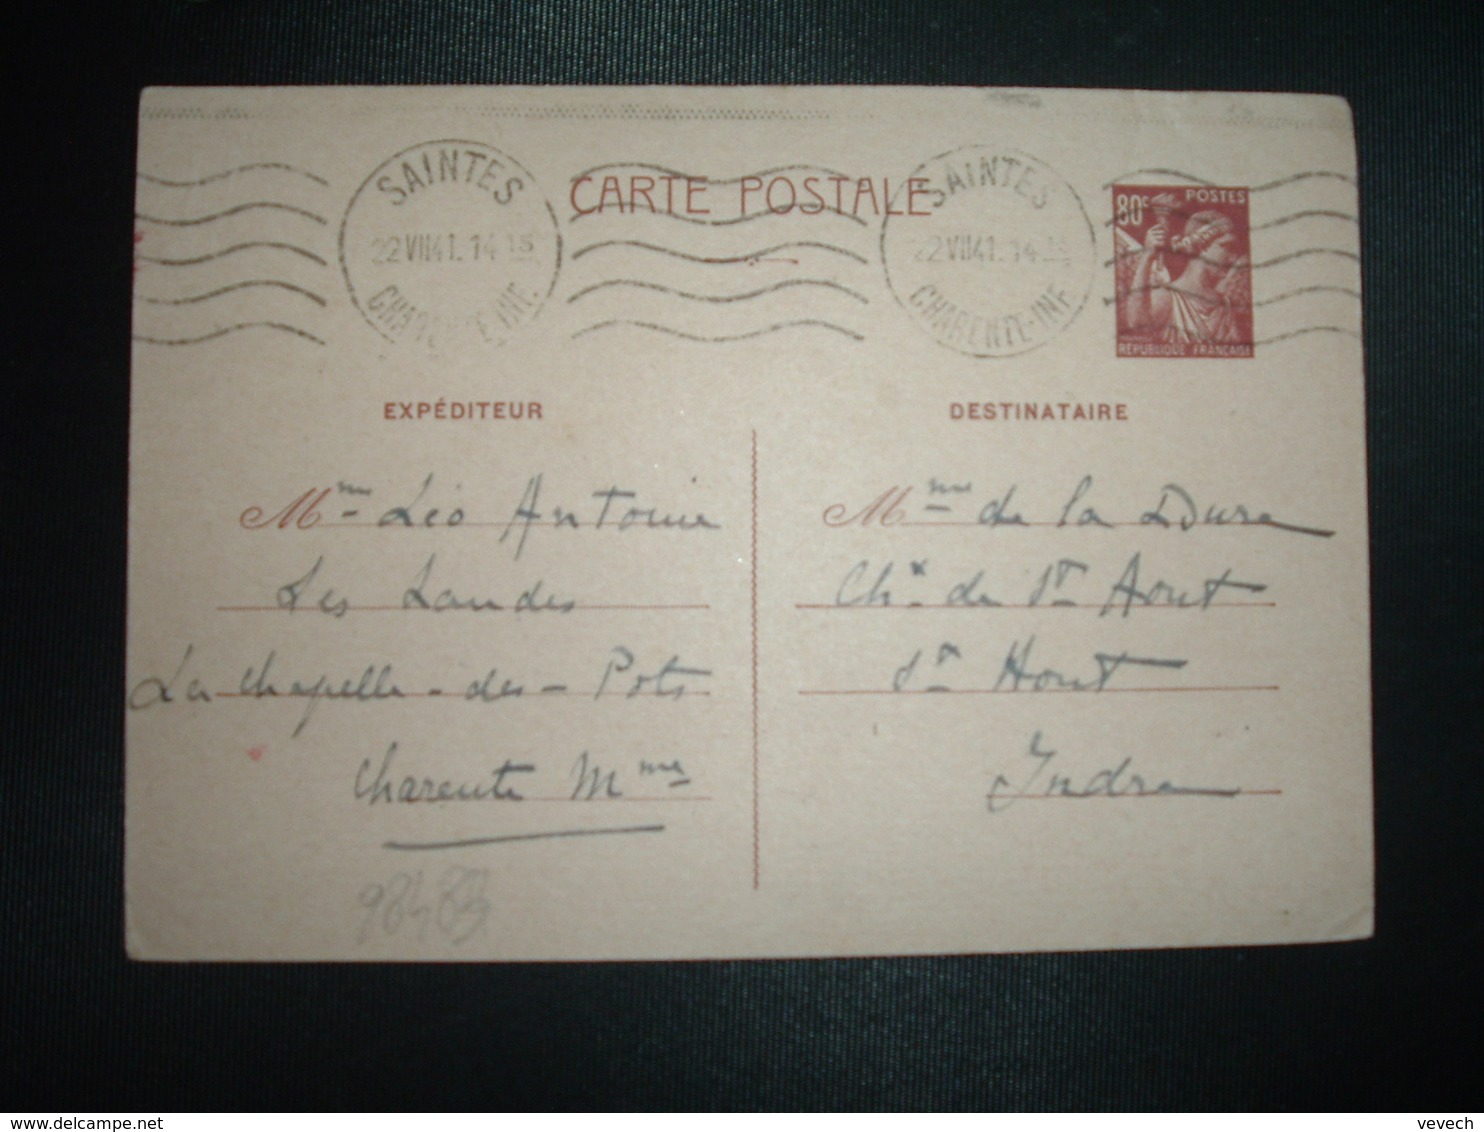 SAINTES
22 VII 41. 14 15
CHARENTE-INF.
CARTE POSTALE
SAINTES
22 VII 41. 14 15
CHARENTE-INF
80c POSTES
REPUBLIQUE FRANÇAISE
EXPÉDITEUR
Mme Léo Antoine
Les Landes
La Chapelle-des-Pots
Charente Mme
DESTINATAIRE
Mme de la
Chx de St Aout
St Aout
Indre
vevech